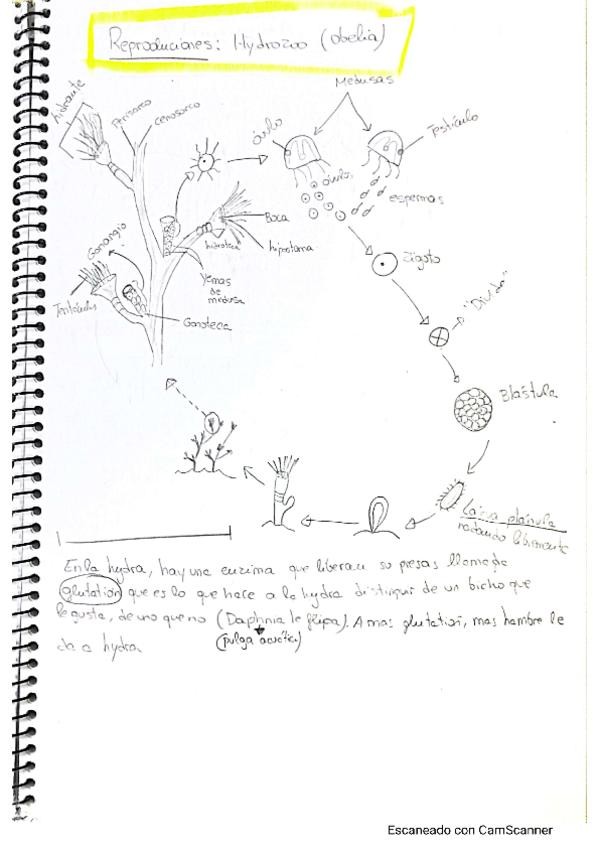 Reproduciones: Hydrozoo (obelia)
Medusas
hidrante
perisarco
cenosarco
óvulo
Testículo
óvulos
espermas
Gonangio
Boca
hidroteca
hipostoma
Zigoto
Yemas
de
medusa
Tentáculos
Gonoteca
"Divido"
Blástula
Larva plánula
nadando libremente
En la hydra, hay una enzima que liberan su presas llamada
glutation que es lo que hace a la hydra distinguir de un bicho que
le gusta, de uno que no (Daphnia le flipa). A mas glutation, mas hambre le
da a hydra
(pulga acuática)
Escaneado con CamScanner